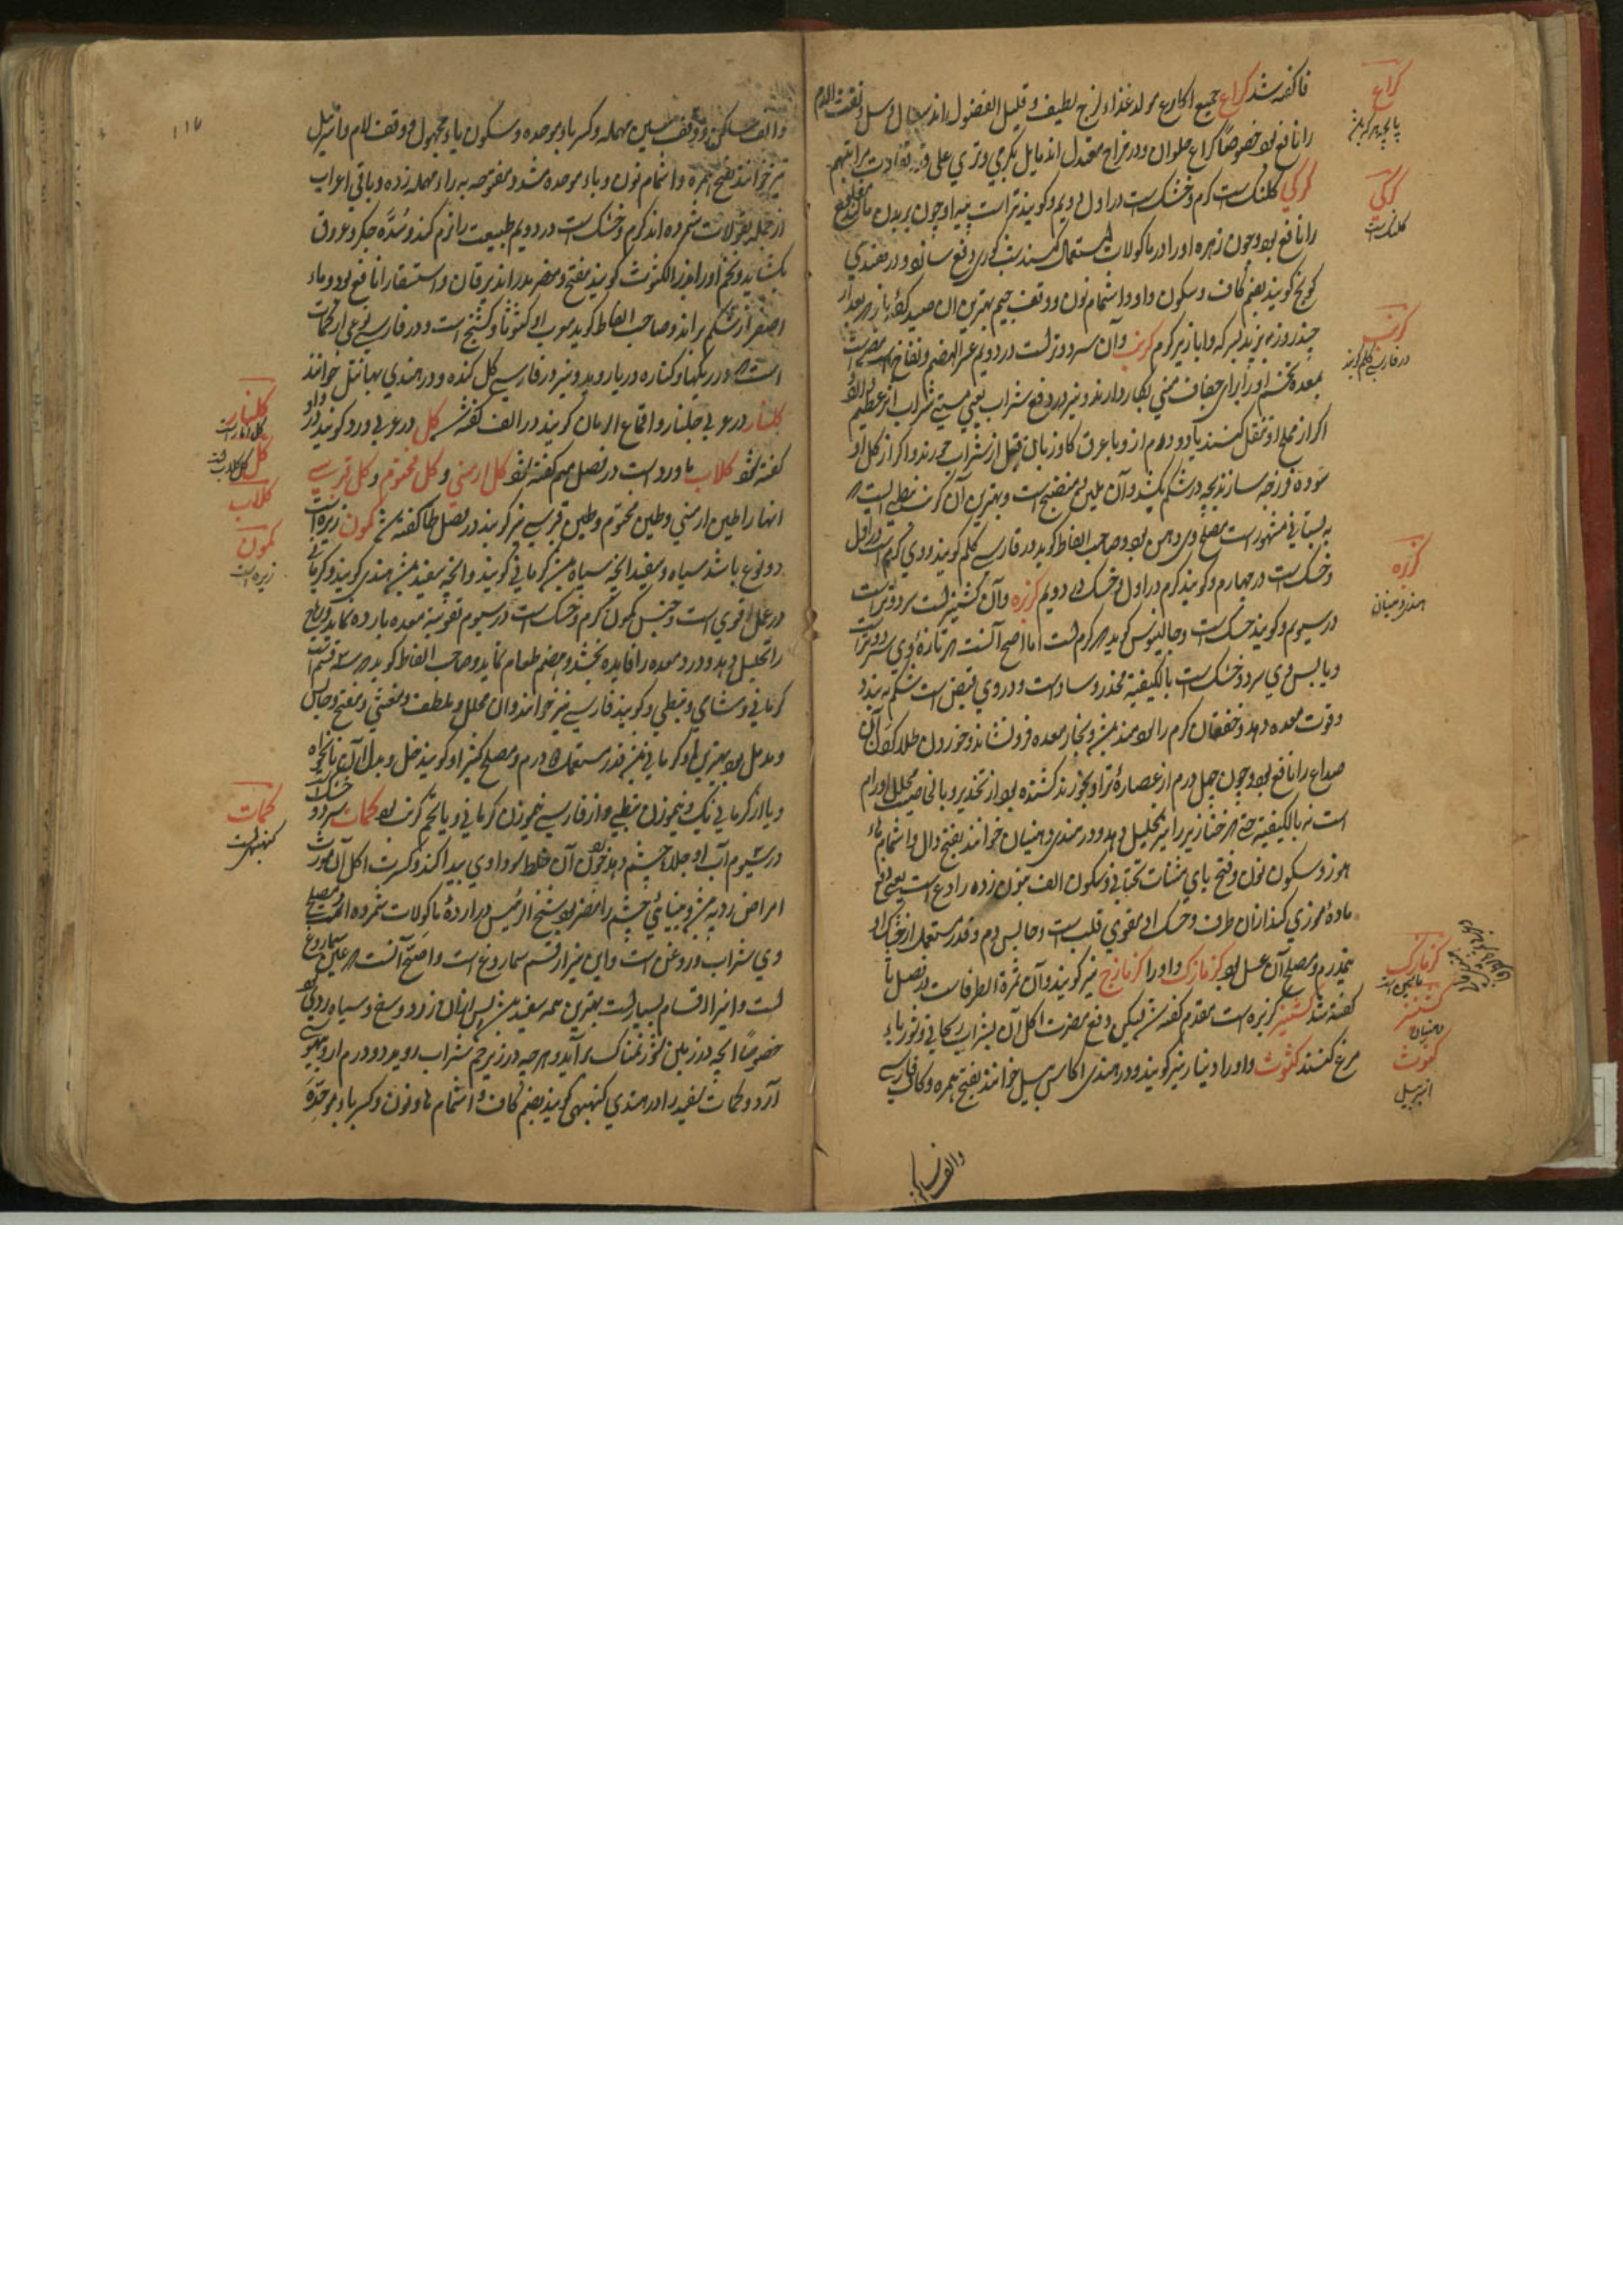 فا گفته شد کراع جمیع اکارع مولد غذاء لزج لطیف و قلیل الفضول اند سعال و سل و نفث الدم
را نافع بود خصوصاً کراع حلوان و در مزاج معتدل اند مایل بگرمی و تری علی قدر تفاوت مراتبهم
کرکی کلنگ است گرم و خشک است در اول دویم و گویند تر است پیه او چون بریدن
را نافع بود و چون زهره او را در ماکولات استعمال کنند شب کوری دفع سازد و در هندی
کونج گویند بضم کاف و سکون واو و اشمام نون و وقف جیم بهترین آن صید کرده باز بعد از
چند روز بپزند بسرکه و ابازیر گرم کرنب و آن سرد و تر است در دویم عسر الهضم و نفاخ است مضر است
بمعده تخم او را برای جفاف منی بکار دارند و نیز در دفع شراب یعنی مستی شراب اثر عظیم
اگر از مملح او تنقل کنند یا دو درم ازو با عرق گاوزبان قبل از شراب خورند و اگر از گل او
سوده فرزجه سازند بچه در شکم بکشد و آن ملین و منضج است و بهترین آن کرنب نبطی است
به بستانی مشهور است مصلح وی دهن بود و صاحب الفاظ گوید در فارسی کلم گویند و وی گرم است در اول
و خشک است در چهارم و گویند گرم در اول و خشک در دویم کزبره و آن کشنیز است سرد و تر است
در سیوم و گویند خشک است و جالینوس گوید گرم است اما اصح آنست تازهٔ وی سرد و تر است
و یابس وی سرد و خشک است بالکیفیة مخدر و ساد است و در وی قبض است شکم به بندد
و قوت معده دهد و خفقان گرم را سودمند بود و بخار معده فرو نشاند و خوردن و طلا کردن آن
صداع را نافع بود و چون چهل درم از عصارهٔ تر او بخورند کشنده بود از تخدیر و بالخاصیت محلل اورام
است نه بالکیفیة حتی خنازیر را نیز تحلیل دهد و در هندی دهنیان خوانند بفتح دال و اشمام هاء
هوز و سکون نون و فتح یای مثنات تحتانی و سکون الف بنون زده رادع است یعنی دفع
مادهٔ موذی کند از آن طرف و خشک او مقوی قلب است و حابس دم و قدر مستعمل از خشک او
پنجدرم و مصلح آن عسل بود کزمازک و او را کزمازج نیز گویند و آن ثمرة الطرفا است در فصل ثا
گفته شد کشنیز کزبره است مقدم گفته شد لیکن دفع مضرت اکل آن بشراب ریحانی و شورباء
مرغ کنند کشوث و او را دینار نیز گویند و در هندی اکاس بیل خوانند بفتح همزه و کاف فارسی
والف ساکن
کراع
پاچه هر گوسپند
کرکی
کلنگ است
کرنب
در فارسی کلم گویند
کزبره
هندی دهنیان
کزمازک
مائین است
کشنیز
دهنیان
کشوث
امربیل
۱۱۷
والف ساکن و وقف سین مهمله و کسر باء موحده و سکون یاء مجهول و وقف لام و امربیل
نیز خوانند بفتح همزه و اشمام نون و باء موحده مشدد مفتوحه به راء مهمله زده و باقی اعراب
از جمله بقولات شمرده اند گرم و خشک است در دویم طبیعت را نرم کند و سده جگر و عروق
بکشاید و تخم او را بزر الکشوث گویند مفتح و مضر مدر اند یرقان و استسقا را نافع بود و ماء
اصفر از شکم براند و صاحب الفاظ گوید معرب او کشوثا و کشنج است و در فارسی نوعی از کمات
است در ریگها و کناره دریا روید و نیز در فارسی گل کنده و در هندی بهانپل خوانند
گلنار در عربی جلنار و اقماع الرمان گویند در الف گفته شد گل در عربی ورد گویند در واو
گفته شود گلاب ماورد است در فصل میم گفته شود گل ارمنی و گل مختوم و گل قبرسی
اینها را طین ارمنی و طین مختوم و طین قبرسی نیز گویند در فصل طا گفته شد کمون زیره است
دو نوع باشد سیاه و سفید آنچه سیاه بود کرمانی گویند و آنچه سفید بود هندی گویند و کرمانی
در عمل اقوی است و جنس کمون گرم و خشک است در سیوم تقویت معده بارده نماید و ریاح
را تحلیل دهد و درد معده را فایده بخشد و هضم طعام نماید و صاحب الفاظ گوید سه قسم است
کرمانی و شامی و نبطی و گویند فارسی نیز خوانند و آن محلل و ملطف و مغشی و مفتح و حابس
و مدمل بود بهترین او کرمانی بود قدر مستعمله درم و مصلح کثیرا و گویند خل و بدل آن نانخواه
و یا از کرمانی یک و نیم وزن نبطی و از فارسی نیم وزن کرمانی و یا تخم کرنب بود کمات سرد و خشک
در سیوم آب او جلاء چشم دهد خوردن آن خلط سوداوی پیدا کند و کثرت اکل آن مورث
امراض ردیه بود و بینائی چشم را مضر بود شیخ الرئیس در ارده ماکولات شمرده است و مصلح
وی شراب و روغن است و این نیز از قسم سماروغ است و اصح آنست عین سماروغ
است و انیرا اقسام بسیار است بهترین همه سفید بود پس از آن زرد و سرخ و سیاه ردی بود
خصوصاً آنچه در زمین شور نمناک برآید و هرچه در زیر خم شراب روید دو درم او بیهوشی
آرد و کمات سفید را در هندی کهنبهی گویند بضم کاف و اشمام ها و نون و کسر باء موحده
گلنار
گل انار است
گل
گل گلاب است
گلاب
کمون
زیره است
کمات
کهنبهی است